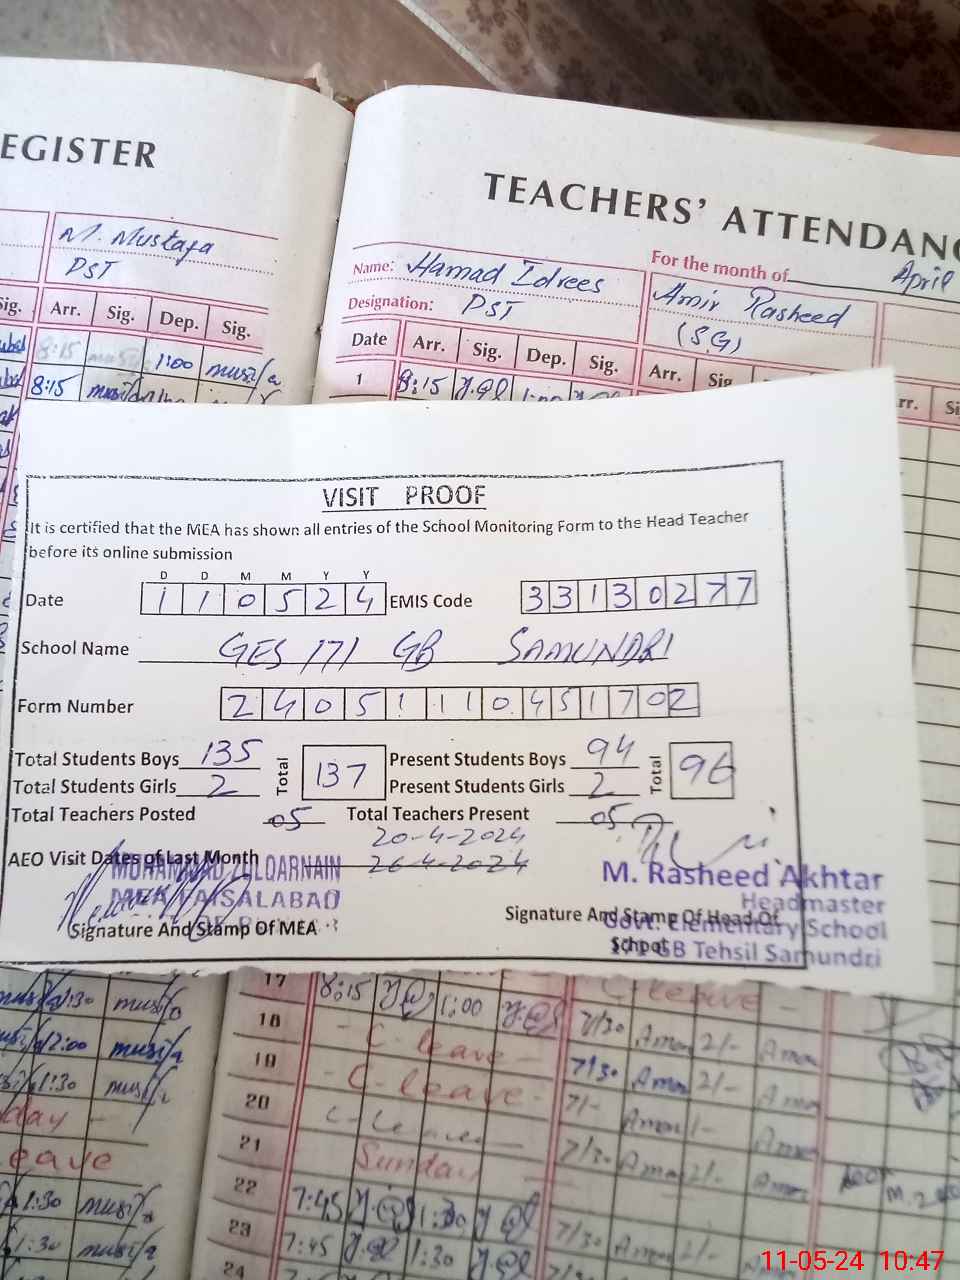 EGISTER
TEACHERS' ATTENDANC
M. Mustafa
PST
Name: Hamad Idrees
Designation: PST
For the month of April
Amir Rasheed
(S.G)
Sig. Arr. Sig. Dep. Sig.
Date Arr. Sig. Dep. Sig. Arr. Sig
rr. Si
8:15 1:00
8:15
1 8:15
VISIT PROOF
It is certified that the MEA has shown all entries of the School Monitoring Form to the Head Teacher
before its online submission
D D M M Y Y
Date 1 1 0 5 2 4 EMIS Code 3 3 1 3 0 2 7 7
School Name GES 171 GB SAMUNDRI
Form Number 2 4 0 5 1 1 1 0 4 5 1 7 0 2
Total Students Boys 135 Total 137 Present Students Boys 94 Total 96
Total Students Girls 2 Present Students Girls 2
Total Teachers Posted 05 Total Teachers Present 05
20-4-2024
AEO Visit Dates of Last Month 26-4-2024
MUHAMMAD ZULQARNAIN
MEA FAISALABAD
Signature And Stamp Of MEA
M. Rasheed Akhtar
Headmaster
Signature And Stamp Of Head Of
Govt. Elementary School
School
171 GB Tehsil Samundri
17 8:15 1:00 C-leave -
18 - C-leave - 7/30
19 - C-leave - 7/30
20 C-Leave 7/-
21 Sunday 7/30
22 7:45 1:30
23 7:45 1:30 7/30
24
1:30
2:00
1:30
day -
eave
1:30
1:30
11-05-24 10:47